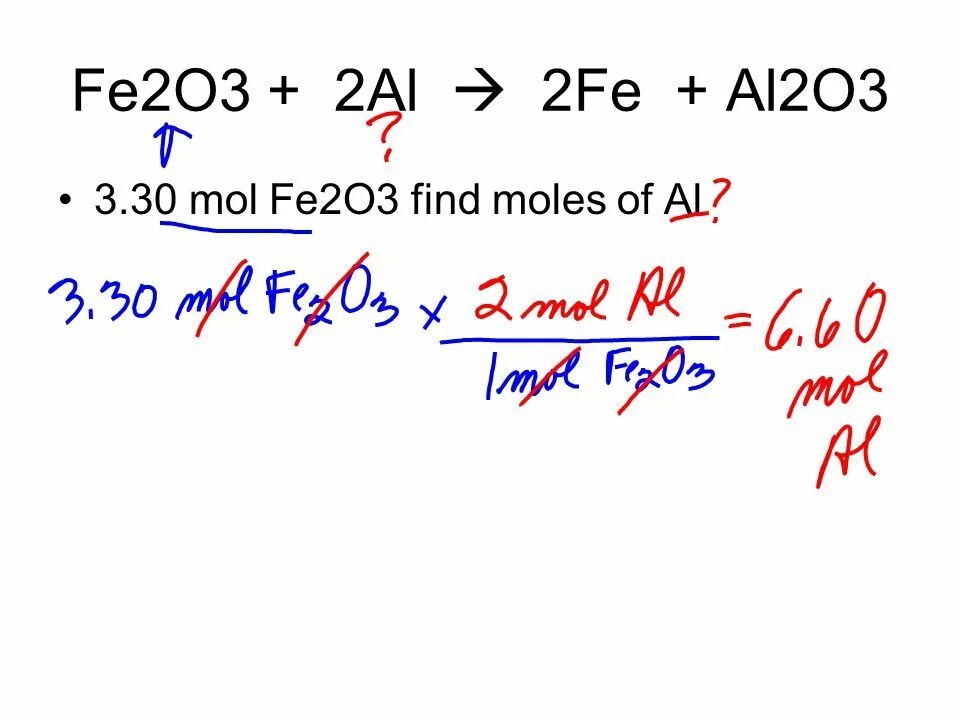 Fe2O3 + 2Al → 2Fe + Al2O3
?
• 3.30 mol Fe2O3 find moles of Al?
3.30 mol Fe2O3 x 2 mol Al = 6.60
1 mol Fe2O3
mol
Al